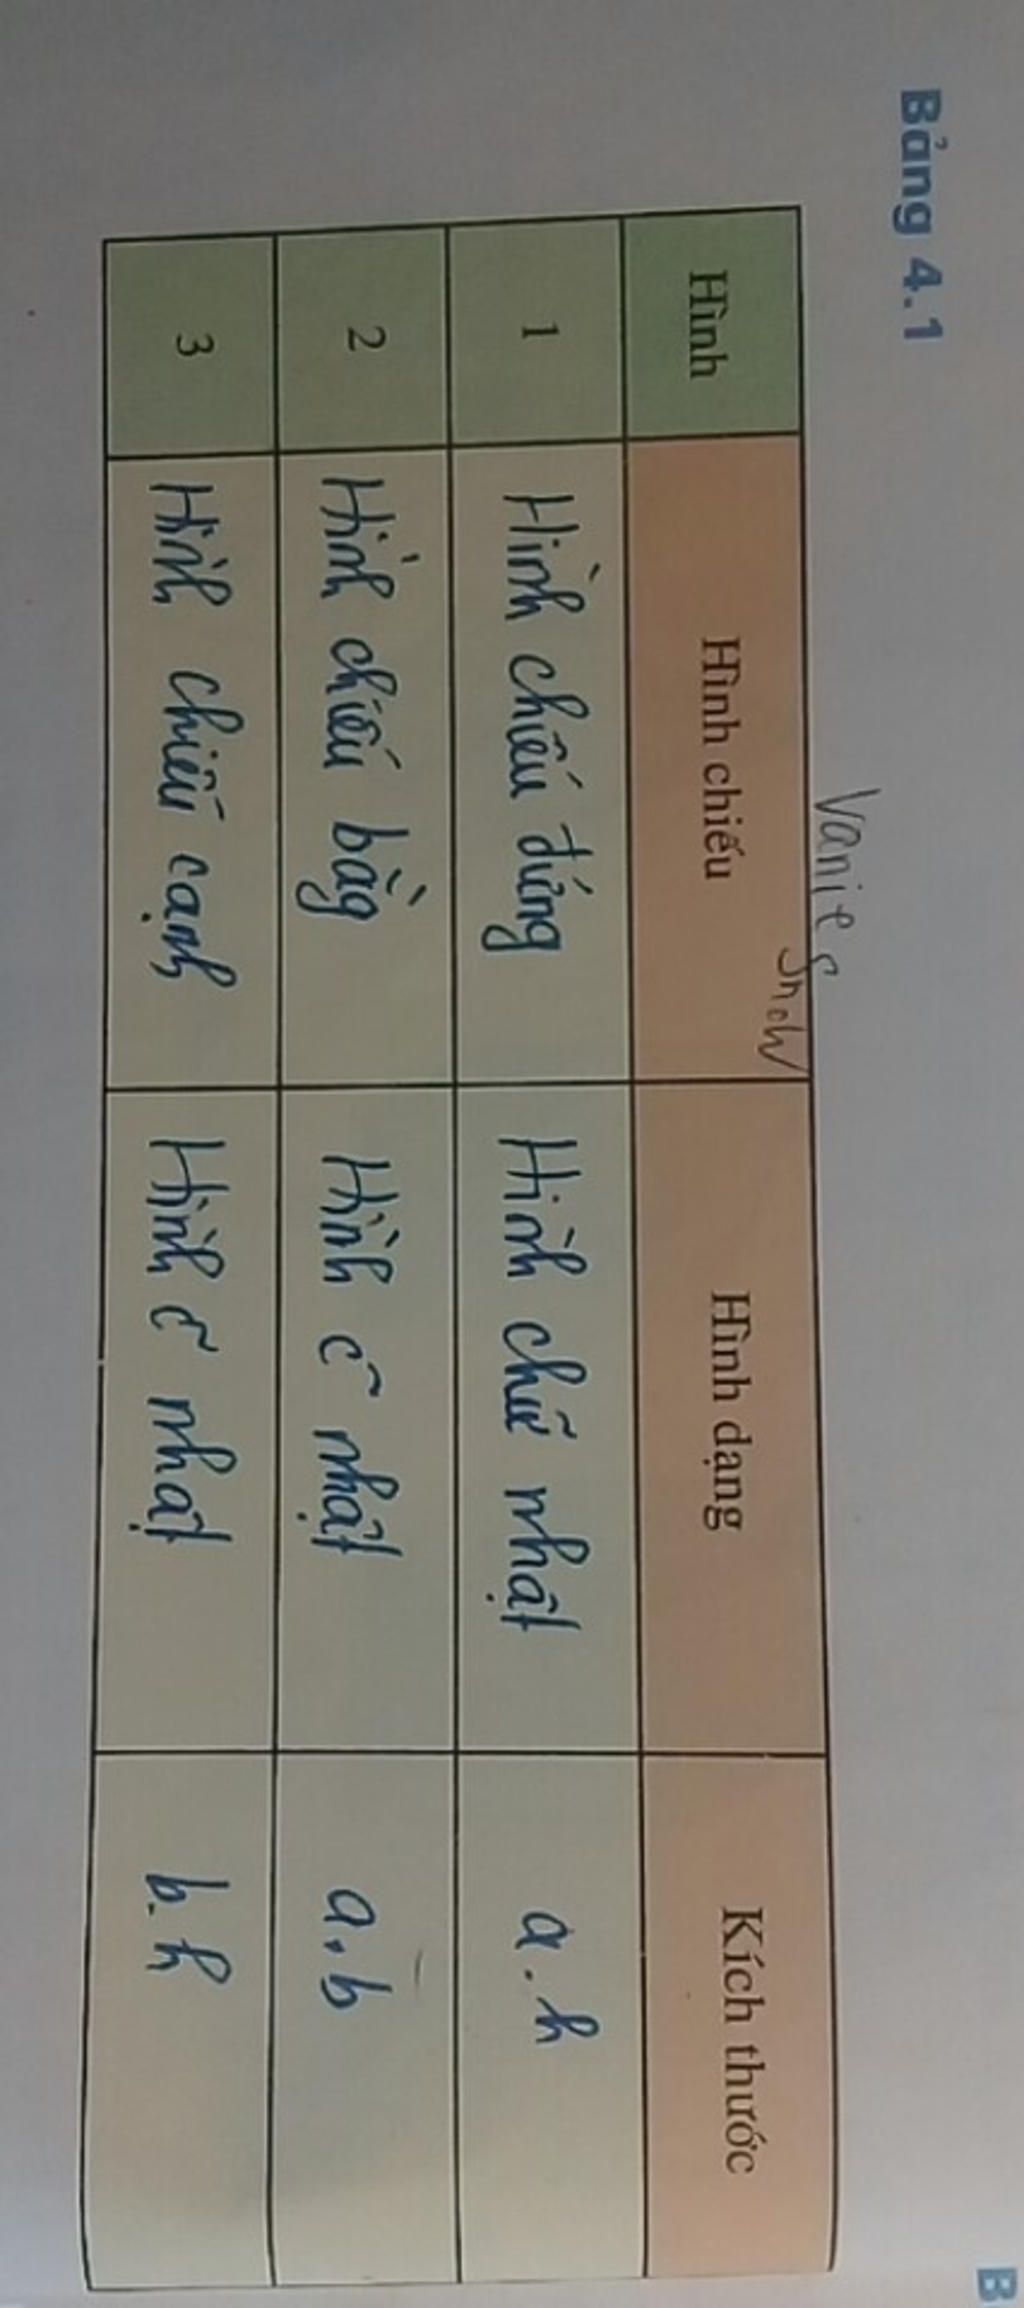 Bảng 4.1
Vanie Snow
Hình Hình chiếu Hình dạng Kích thước
1 Hình chiếu đứng Hình chữ nhật a.h
2 Hình chiếu bằg Hình c~ nhật a.b
3 Hình chiếu cạnh Hình c~ nhật b.h
B